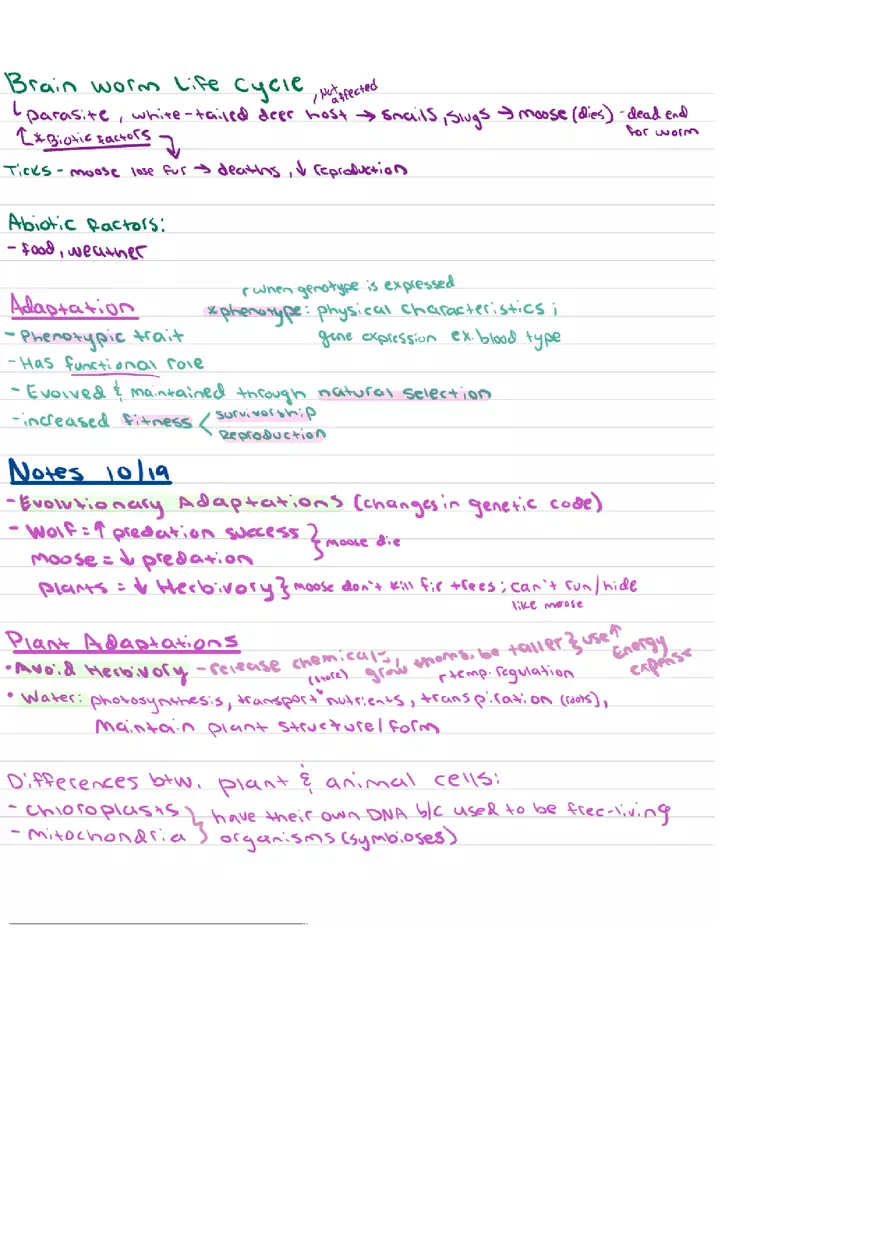 Brain worm Life Cycle
, Not affected
↳ parasite, white-tailed deer host → snails, slugs → moose (dies) - dead end for worm
* Biotic factors
Ticks - moose lose fur → deaths, ↓ reproduction
Abiotic Factors:
- food, weather
when genotype is expressed
Adaptation
*phenotype: physical characteristics;
gene expression ex. blood type
- Phenotypic trait
- Has functional role
- Evolved & maintained through natural selection
- increased fitness < survivorship
Reproduction
Notes 10/19
- Evolutionary Adaptations (changes in genetic code)
- Wolf = ↑ predation success } moose die
moose = ↓ predation
plants = ↓ Herbivory } moose don't kill fir trees; can't run/hide
like moose
Plant Adaptations
• Avoid Herbivory - release chemicals, grow thorns, be taller } use ↑ Energy expense
(store) temp. regulation
• Water: photosynthesis, transport nutrients, transpiration (roots),
Maintain plant structure/form
Differences btw. plant & animal cells:
- Chloroplasts } have their own DNA b/c used to be free-living
- Mitochondria } organisms (symbioses)